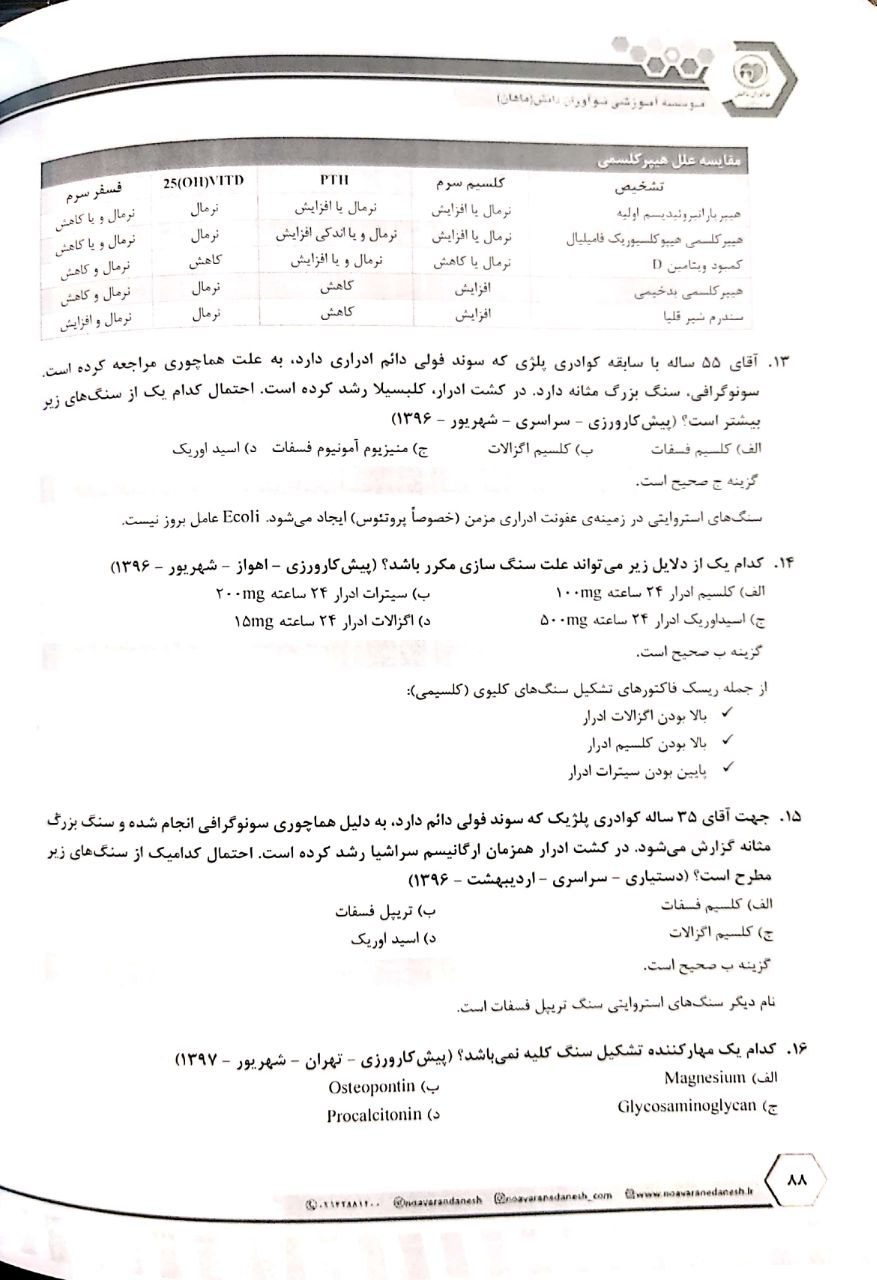 موسسه آموزشی نوآوران دانش(ماهان)
مقایسه علل هیپرکلسمی
تشخیص کلسیم سرم PTH 25(OH)VITD فسفر سرم
هیپرپاراتیروئیدیسم اولیه نرمال یا افزایش نرمال یا افزایش نرمال نرمال و یا کاهش
هیپرکلسمی هیپوکلسیوریک فامیلیال نرمال یا افزایش نرمال و یا اندکی افزایش نرمال نرمال و یا کاهش
کمبود ویتامین D نرمال یا کاهش نرمال و یا افزایش کاهش نرمال و کاهش
هیپرکلسمی بدخیمی افزایش کاهش نرمال نرمال و کاهش
سندرم شیر قلیا افزایش کاهش نرمال نرمال و افزایش
۱۳. آقای ۵۵ ساله با سابقه کوادری پلژی که سوند فولی دائم ادراری دارد، به علت هماچوری مراجعه کرده است.
سونوگرافی، سنگ بزرگ مثانه دارد. در کشت ادرار، کلبسیلا رشد کرده است. احتمال کدام یک از سنگ‌های زیر
بیشتر است؟ (پیش‌کارورزی - سراسری - شهریور - ۱۳۹۶)
الف) کلسیم فسفات ب) کلسیم اگزالات ج) منیزیوم آمونیوم فسفات د) اسید اوریک
گزینه ج صحیح است.
سنگ‌های استروایتی در زمینه‌ی عفونت ادراری مزمن (خصوصاً پروتئوس) ایجاد می‌شود. Ecoli عامل بروز نیست.
۱۴. کدام یک از دلایل زیر می‌تواند علت سنگ سازی مکرر باشد؟ (پیش‌کارورزی - اهواز - شهریور - ۱۳۹۶)
الف) کلسیم ادرار ۲۴ ساعته ۱۰۰mg ب) سیترات ادرار ۲۴ ساعته ۲۰۰mg
ج) اسیداوریک ادرار ۲۴ ساعته ۵۰۰mg د) اگزالات ادرار ۲۴ ساعته ۱۵mg
گزینه ب صحیح است.
از جمله ریسک فاکتورهای تشکیل سنگ‌های کلیوی (کلسیمی):
✓ بالا بودن اگزالات ادرار
✓ بالا بودن کلسیم ادرار
✓ پایین بودن سیترات ادرار
۱۵. جهت آقای ۳۵ ساله کوادری پلژیک که سوند فولی دائم دارد، به دلیل هماچوری سونوگرافی انجام شده و سنگ بزرگ
مثانه گزارش می‌شود. در کشت ادرار همزمان ارگانیسم سراشیا رشد کرده است. احتمال کدامیک از سنگ‌های زیر
مطرح است؟ (دستیاری - سراسری - اردیبهشت - ۱۳۹۶)
الف) کلسیم فسفات ب) تریپل فسفات
ج) کلسیم اگزالات د) اسید اوریک
گزینه ب صحیح است.
نام دیگر سنگ‌های استروایتی سنگ تریپل فسفات است.
۱۶. کدام یک مهارکننده تشکیل سنگ کلیه نمی‌باشد؟ (پیش‌کارورزی - تهران - شهریور - ۱۳۹۷)
الف) Magnesium ب) Osteopontin
ج) Glycosaminoglycan د) Procalcitonin
۸۸
www.noavaranedanesh.ir noavaranedanesh_com noavarandanesh